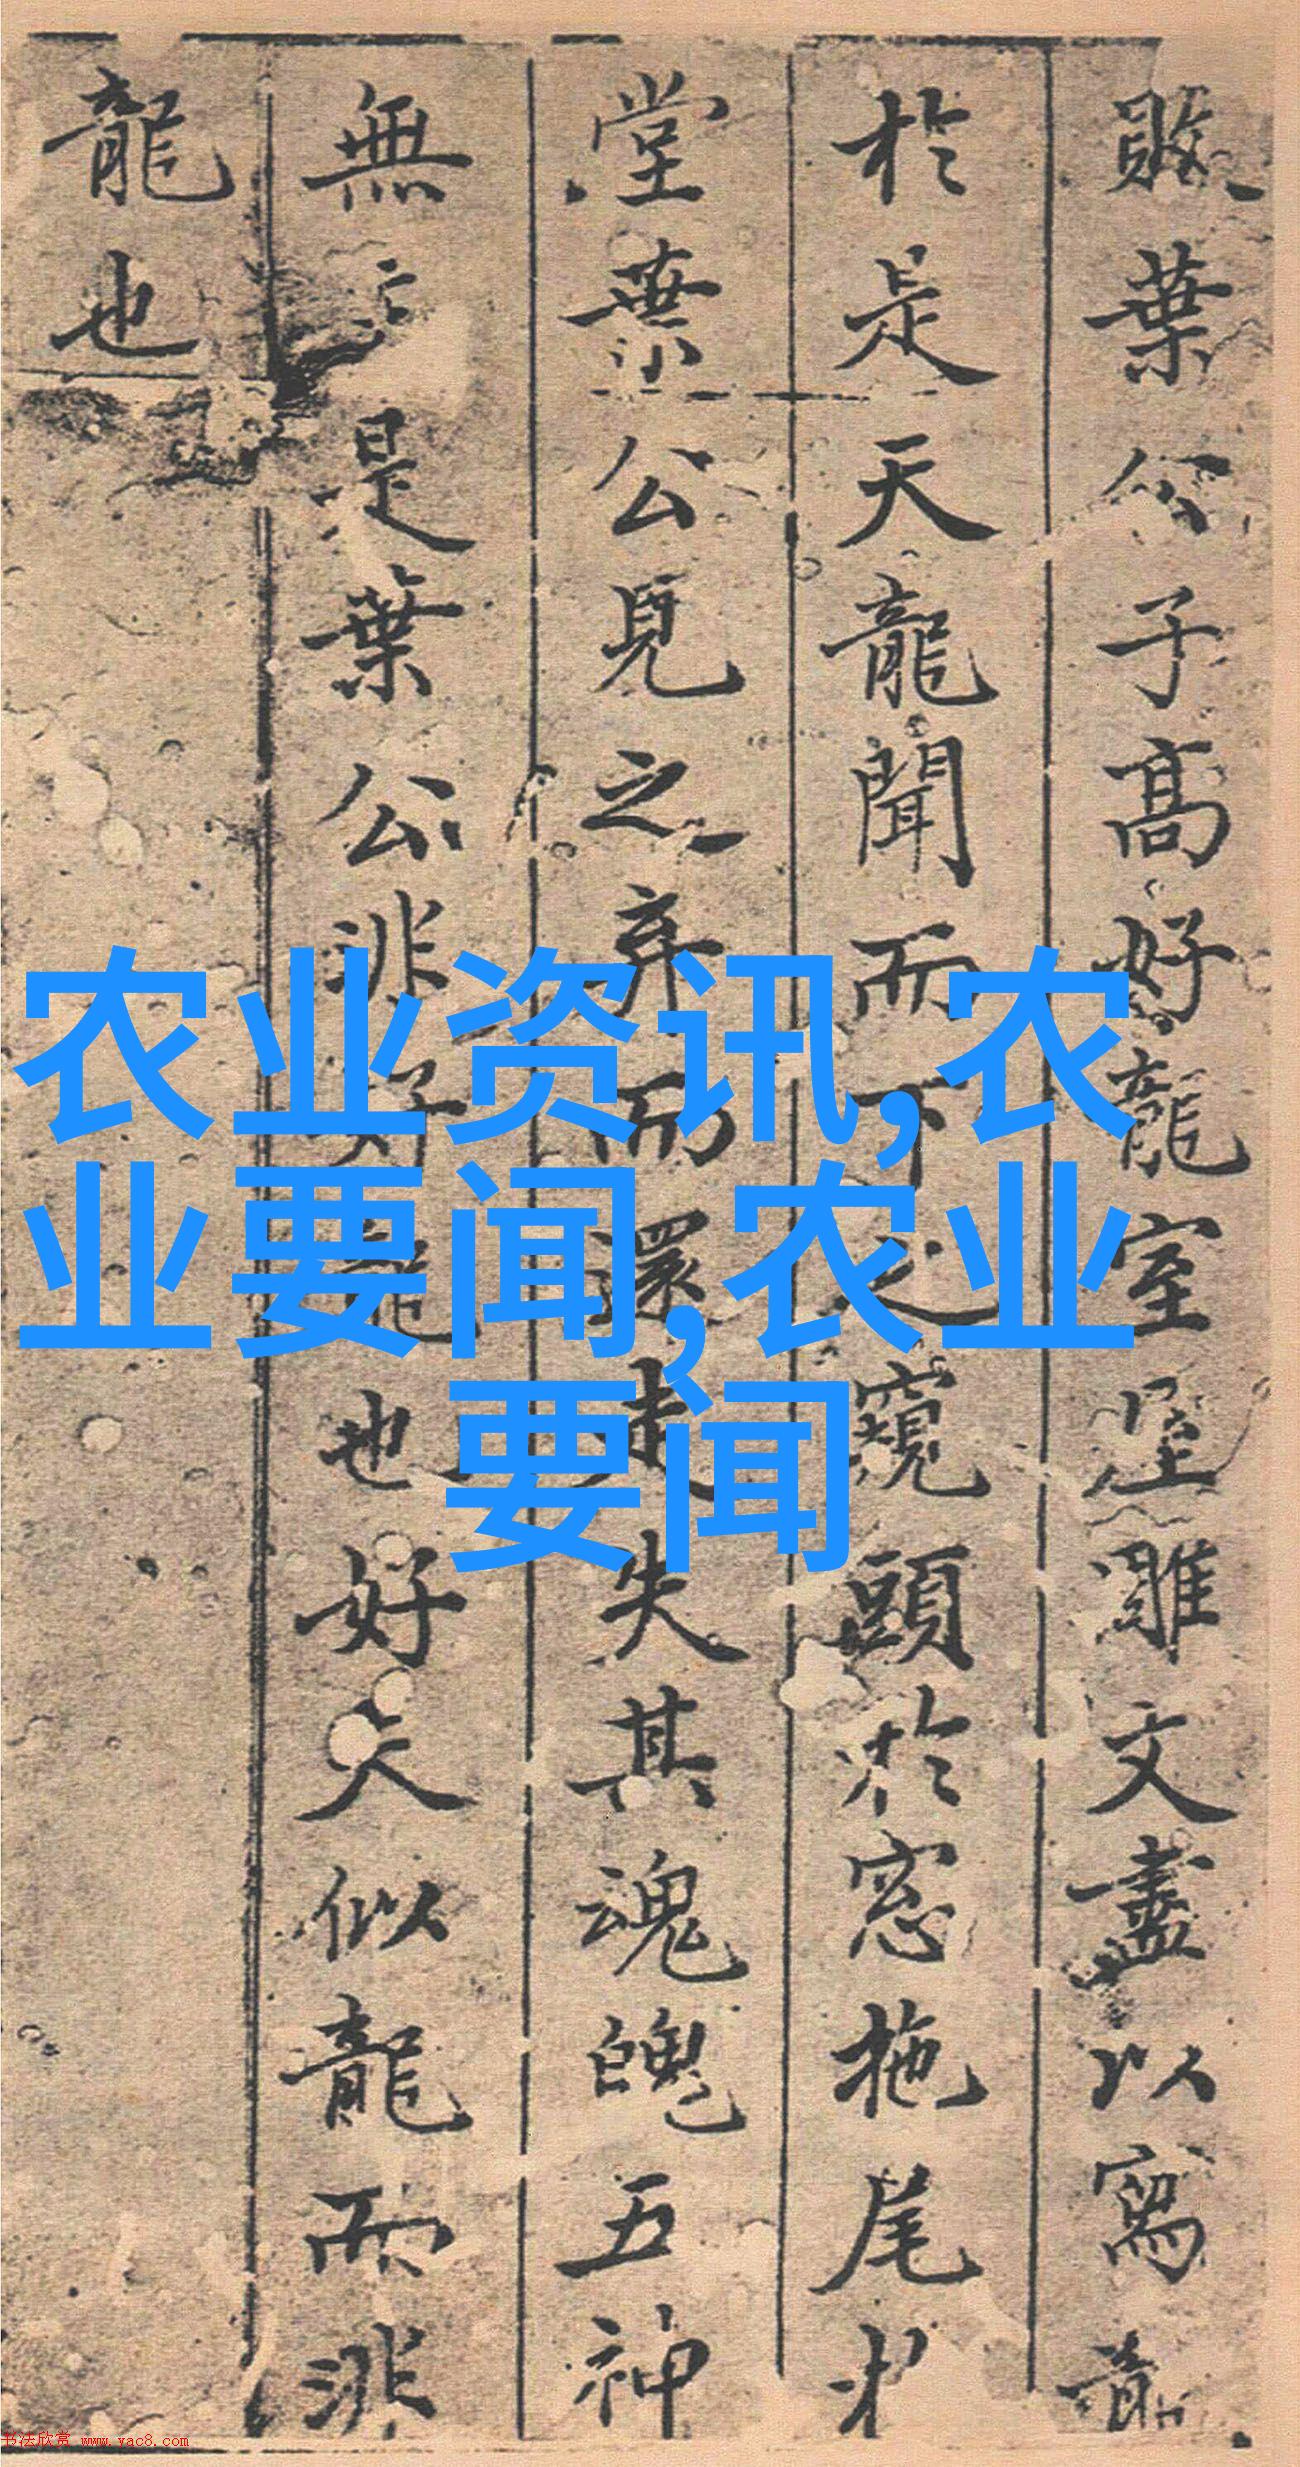 殹葉公子髙好龍室屋雕文盡以寫龍
於是天龍聞而下之窺頭於窓拖尾
堂葉公見之弃而還走失其魂魄五神
無主是葉公非好龍也好夫似龍而非
龍也
农业资讯,农
业要闻,农业
要闻
书法欣赏 www.yac8.com